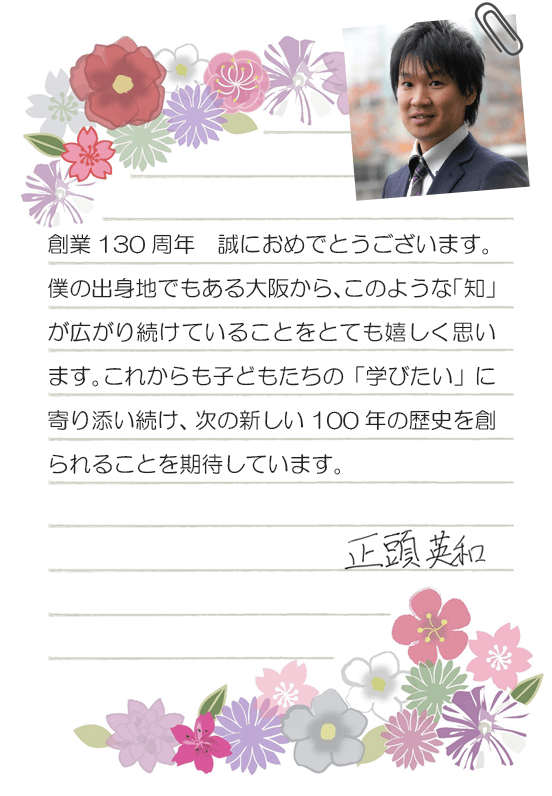 創業 130 周年　誠におめでとうございます。
僕の出身地でもある大阪から、このような「知」
が広がり続けていることをとても嬉しく思い
ます。これからも子どもたちの「学びたい」に
寄り添い続け、次の新しい 100 年の歴史を創
られることを期待しています。
正頭英和